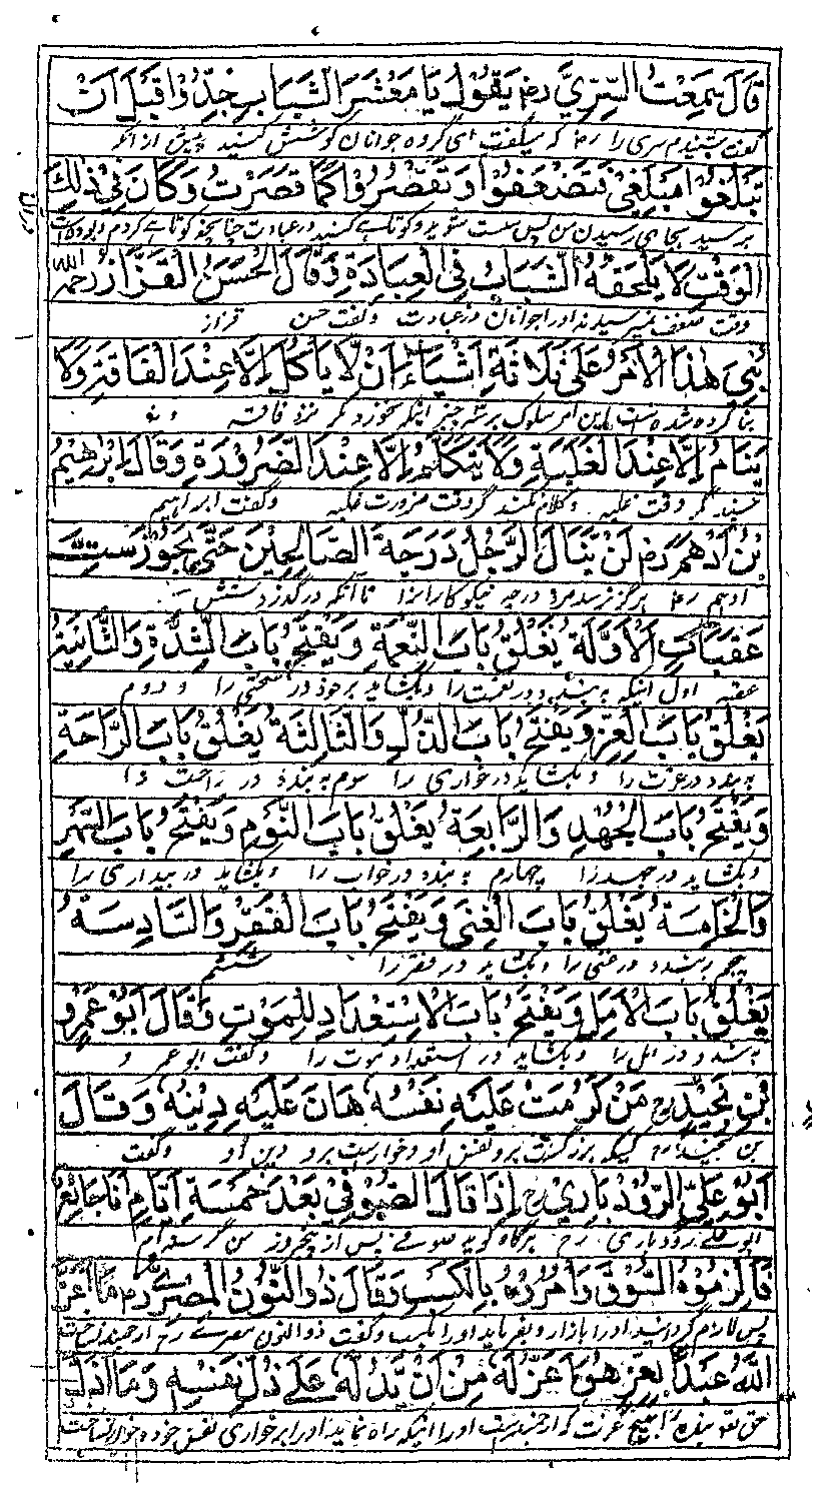 قَالَ سَمِعْتُ السَّرِيَّ رض يَقُولُ يَا مَعْشَرَ الشَّبَابِ جِدُّوْا قَبْلَ اَنْ
گفت شنیدم سری را رض که میگفت ای گروه جوانان کوشش کنید پیش از آنکه
تَبْلُغُوْا مَبْلَغِيْ فَتَضْعَفُوْا وَتُقَصِّرُوْا كَمَا قَصَّرْتُ وَكَانَ فِيْ ذٰلِكَ
برسید بجای رسیدن من پس سست شوید و کوتاهی کنید در عبادت چنانچه کوتاهی کردم و بود
الْوَقْتِ لَا يَلْحَقُهُ الشَّبَابُ فِي الْعِبَادَةِ وَقَالَ الْحَسَنُ الْقَزَّازُ رحمه الله
وقت نمیرسیدند اورا جوانان در عبادت وگفت حسن قزاز
بُنِيَ هٰذَا الْاَمْرُ عَلٰى ثَلَاثَةِ اَشْيَاءَ اَنْ لَّا يَاْكُلَ اِلَّا عِنْدَ الْفَاقَةِ وَلَا
بنا کرده شده است این امر سلوک بر سه چیز اینکه نخورد مگر نزد فاقه و نه
يَنَامُ اِلَّا عِنْدَ الْغَلَبَةِ وَلَا يَتَكَلَّمُ اِلَّا عِنْدَ الضَّرُوْرَةِ وَقَالَ اِبْرٰهِيْمُ
مگر وقت غلبه وکلام نکند مگر وقت ضرورت وگفت ابراهیم
بْنُ اَدْهَمَ رض لَنْ يَّنَالَ الرَّجُلُ دَرَجَةَ الصَّالِحِيْنَ حَتّٰى يَجُوْزَ سِتَّ
ادهم رض هرگز نرسد مرد درجه نیکوکارانرا تا آنکه درگذرد شش
عَقَبَاتٍ الْاَوَّلَةُ يُغْلَقُ بَابَ النِّعْمَةِ وَيُفْتَحُ بَابَ الشِّدَّةِ وَالثَّانِيَةُ
عقبه اول اینکه به بندد در نعمت را وبکشاید بر خود در سختی را و دوم
يُغْلَقُ بَابَ الْعِزِّ وَيُفْتَحُ بَابَ الذُّلِّ وَالثَّالِثَةُ يُغْلَقُ بَابَ الرَّاحَةِ
به بندد در عزت را وبکشاید در خواری را سوم به بندد در راحت را
وَيُفْتَحُ بَابَ الْجُهْدِ وَالرَّابِعَةُ يُغْلَقُ بَابَ النَّوْمِ وَيُفْتَحُ بَابَ السَّهَرِ
وبکشاید در جهد را چهارم به بندد در خواب را وبکشاید در بیداری را
وَالْخَامِسَةُ يُغْلَقُ بَابَ الْغِنٰى وَيُفْتَحُ بَابَ الْفَقْرِ وَالسَّادِسَةُ
پنجم به بندد در غنی را وبکشاید در فقر را ششم
يُغْلَقُ بَابَ الْاَمَلِ وَيُفْتَحُ بَابَ الْاِسْتِعْدَادِ لِلْمَوْتِ وَقَالَ اَبُوْ عَمْرٍو
به بندد در امل را وبکشاید در استعداد موت را وگفت ابو عمرو
بْنُ نُجَيْدٍ رح مَنْ كَرُمَتْ عَلَيْهِ نَفْسُهٗ هَانَ عَلَيْهِ دِيْنُهٗ وَقَالَ
بن نجید رح کسیکه بزرگست برو نفس او خوار است برو دین او وگفت
اَبُوْ عَلِيِّ الرُّوْدْبَارِيُّ رح اِذَا قَالَ الصُّوْفِيُّ بَعْدَ خَمْسَةِ اَيَّامٍ اَنَا جَائِعٌ
ابو علی رودباری رح هرگاه گوید صوفی پس از پنجروز من گرسنه ام
فَاَلْزِمُوْهُ السُّوْقَ وَاْمُرُوْهُ بِالْكَسْبِ وَقَالَ ذُو النُّوْنِ الْمِصْرِيُّ رح مَا اَعَزَّ
پس لازم گردانید اورا بازار و بفرمایید اورا بکسب وگفت ذوالنون مصری رح ارجمند نساخت
اللّٰهُ عَبْدًا بِعِزٍّ هُوَ اَعَزُّ لَهٗ مِنْ اَنْ يَّدُلَّهٗ عَلٰى ذُلِّ نَفْسِهٖ وَمَا اَذَلَّ
حق تعالی بنده را بهیچ عزت که ارجمندتر است اورا از اینکه راه نماید اورا بر خواری نفس خود و خوار نساخت